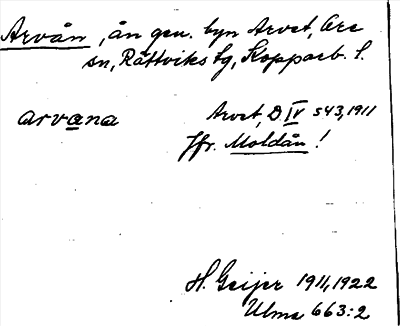 Arvån, ån gen. byn Arvet, Ore
sn, Rättviks tg, Kopparb. l.
arvana
Arvet, D IV s43, 1911
Jfr. Moldån!
H. Geijer 1911, 1922
Ulma 663:2